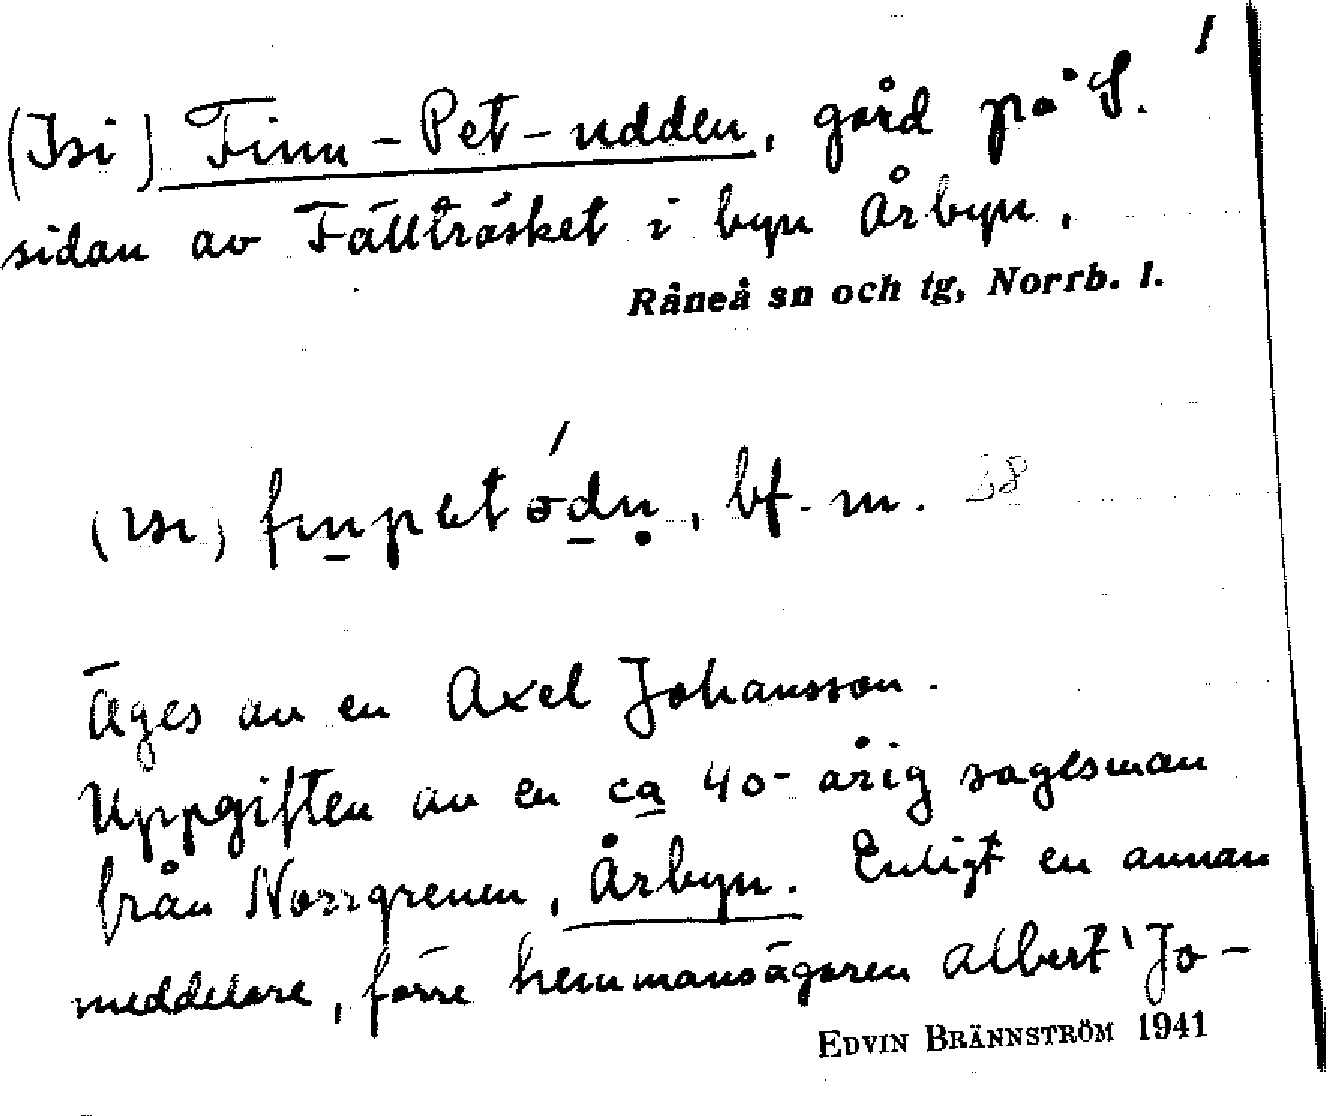 1
(Isi) Finn-Pet-udden, gård på S.
sidan av Fällträsket i byn Årbyn.
Råneå sn och tg, Norrb. l.
bf. m. 38
Äges av en Axel Johansson.
Uppgiften av en ca 40-årig sagesman
från Norrgrenen, Årbyn. Enligt en annan
meddelare, förre hemmansägaren Albert Jo-
EDVIN BRÄNNSTRÖM 1941